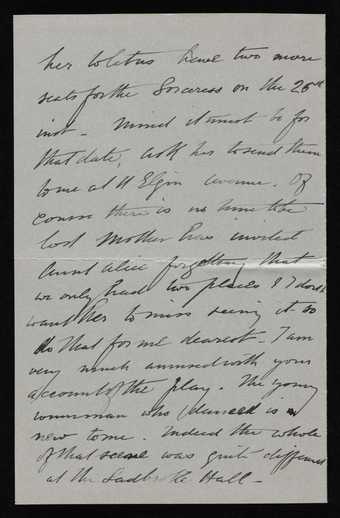 her to let us have two more
seats for the Sorceress on the 25th
inst - mind it must be for
that date, ask her to send them
to me at 11 Elgin Avenue. Of
course there is no time to be
lost Mother has invited
Aunt Alice forgetting that
we only had two places & I don't
want her to miss seeing it so
do that for me dearest - I am
very much amused with your
account of the play. The young
woman who danced is
new to me. Indeed the whole
of that scene was quite different
at the Ladbroke Hall -